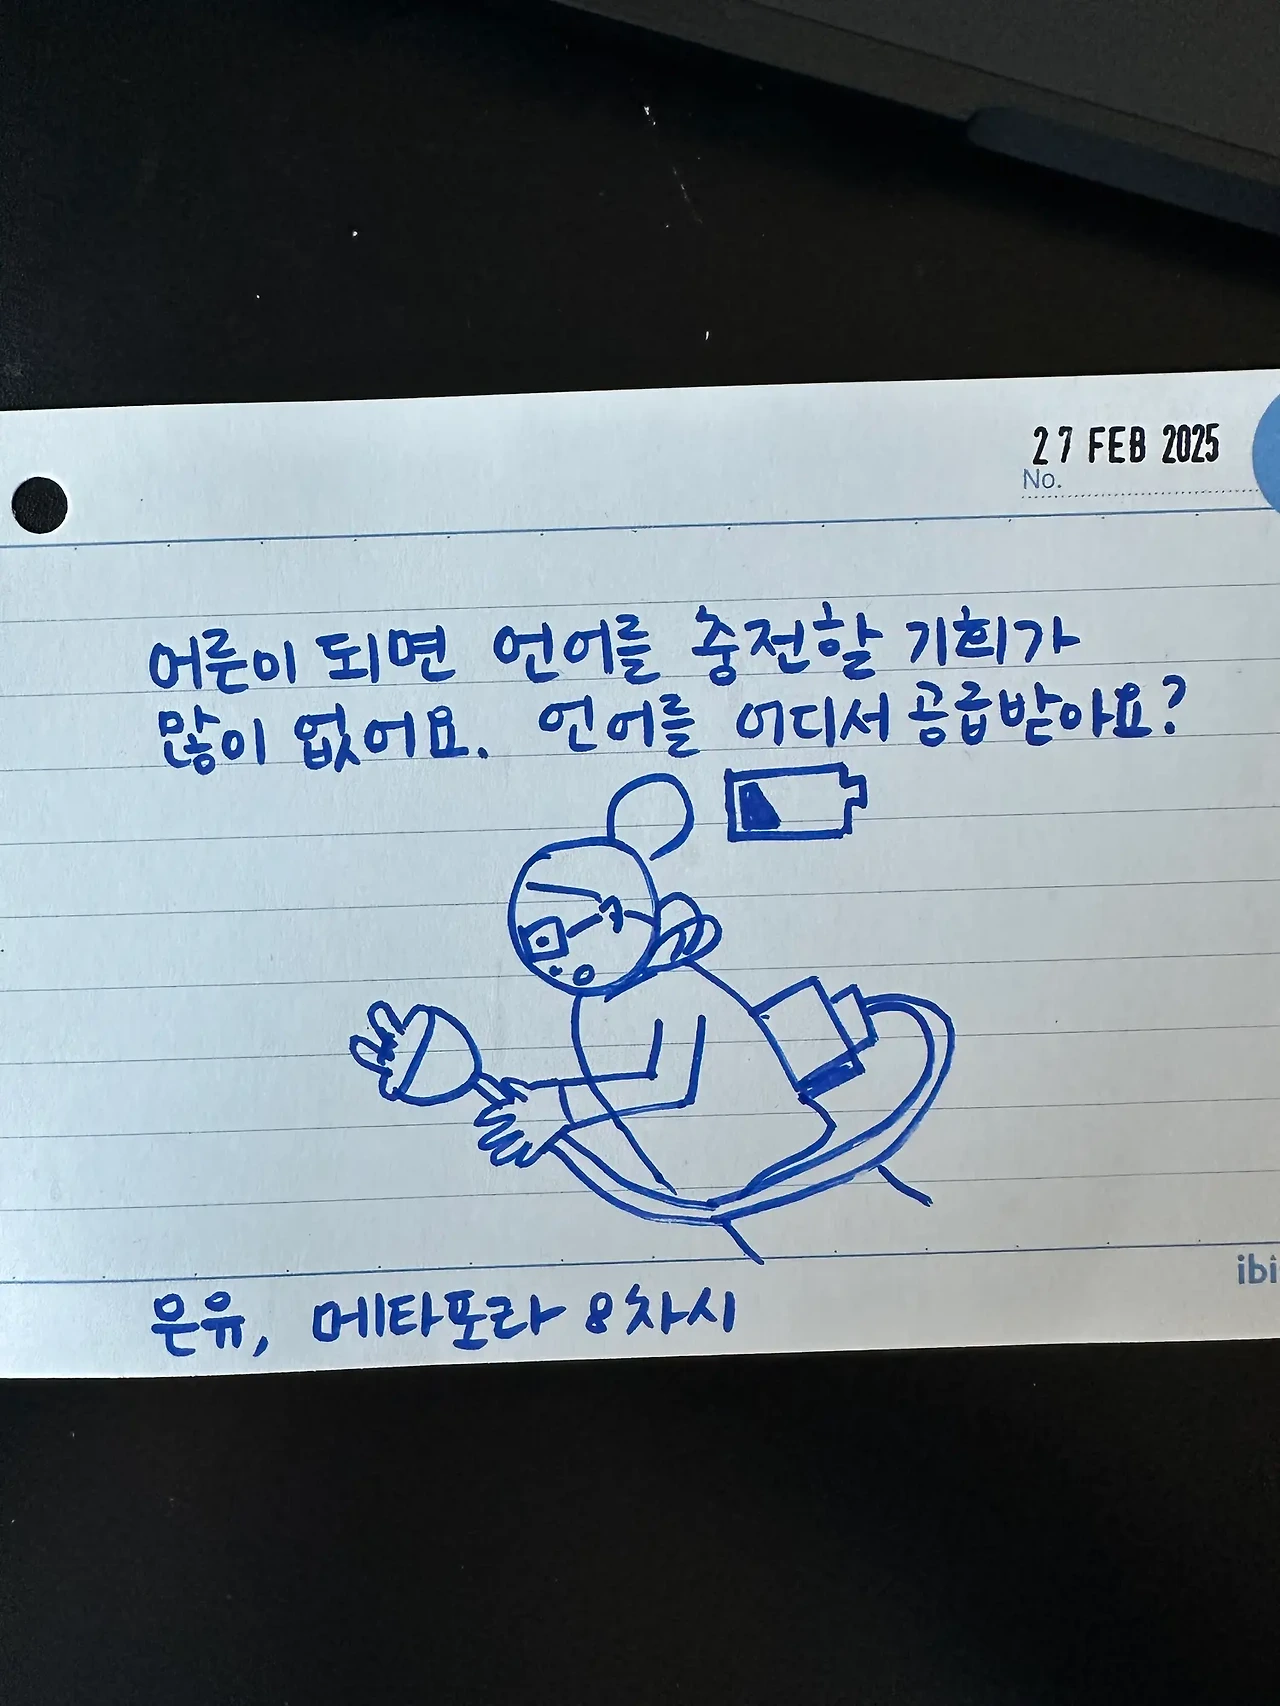 27 FEB 2025
No.
어른이 되면 언어를 충전할 기회가
많이 없어요. 언어를 어디서 공급받아요?
ibi
은유, 메타포라 8차시